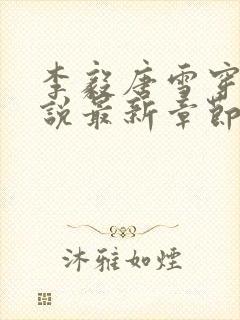 李毅唐雪穿
說最新章節
沐雅如煙